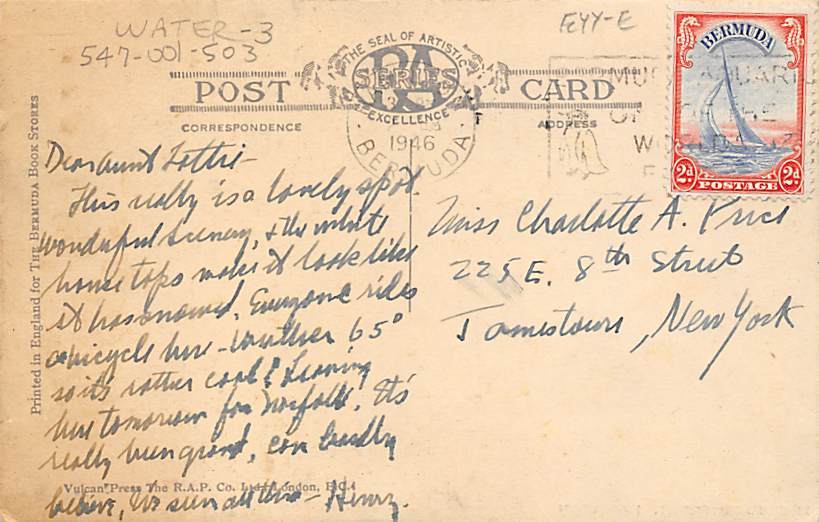 WATER-3
547-001-503
EEYY-E
THE SEAL OF ARTISTIC
SERIES
EXCELLENCE
POST CARD
CORRESPONDENCE
ADDRESS
1946
BERMUDA
BERMUDA
2d 2d
POSTAGE
Printed in England for THE BERMUDA BOOK STORES
Dear Aunt Lottie-
This really is a lovely spot.
wonderful scenery, & the white
house tops make it look like
it has snowed. Everyone rides
a bicycle here - weather 65°
so its rather cool! Leaving
here tomorrow for Norfolk. It's
really been grand, can hardly
believe, I've seen all this - Henry.
Miss Charlotte A. Price
225 E. 8th Street
Jamestown, New York
Vulcan Press The R.A.P. Co. Ltd., London, E.C.1